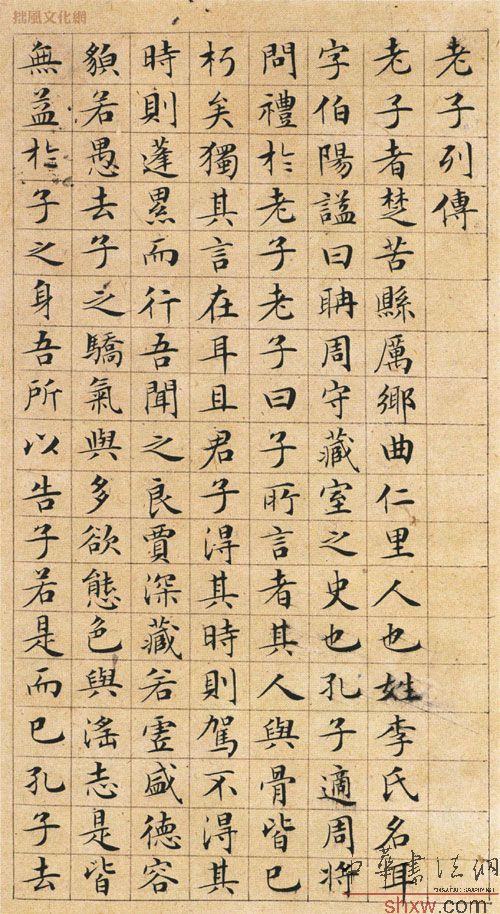 拙風文化網
老子列傳
老子者楚苦縣厲鄉曲仁里人也姓李氏名耳
字伯陽謚曰聃周守藏室之史也孔子適周將
問禮於老子老子曰子所言者其人與骨皆已
朽矣獨其言在耳且君子得其時則駕不得其
時則蓬累而行吾聞之良賈深藏若虛盛德容
䫉若愚去子之驕氣與多欲態色與淫志是皆
無益於子之身吾所以告子若是而已孔子去
中華書法網
shxw.com